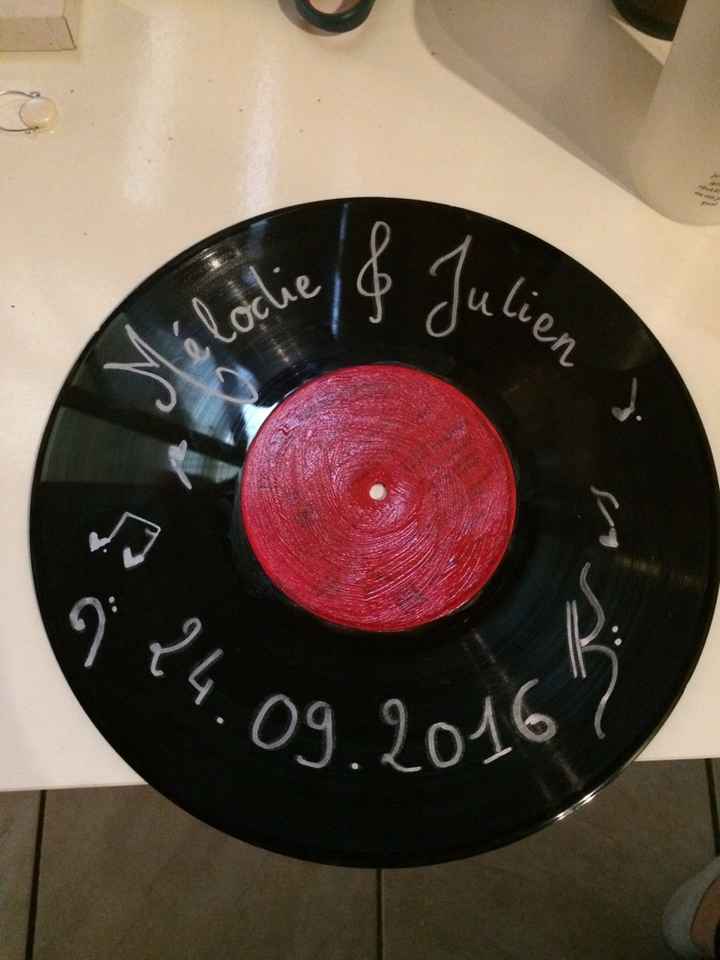 Mélodie & Julien
24.09.2016